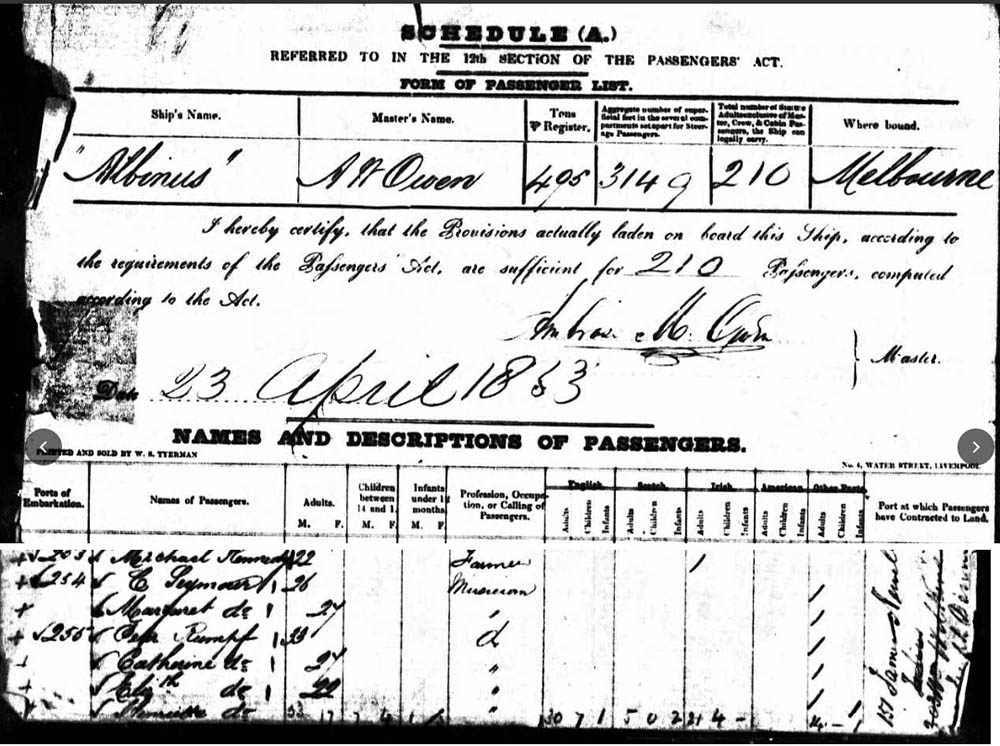 SCHEDULE (A.)
REFERRED TO IN THE 12th SECTION OF THE PASSENGERS' ACT.
FORM OF PASSENGER LIST.
Ship's Name. Master's Name. Tons ℔ Register. Aggregate number of superficial feet in the several compartments set apart for Steerage Passengers. Total number of Statute Adults, exclusive of Master, Crew, & Cabin Passengers, the Ship can legally carry. Where bound.
"Albinus" A W Owen 495 3149 210 Melbourne
I hereby certify, that the Provisions actually laden on board this Ship, according to
the requirements of the Passengers' Act, are sufficient for 210 Passengers, computed
according to the Act.
M. Owen
Master.
Date 23 April 1853
NAMES AND DESCRIPTIONS OF PASSENGERS.
PRINTED AND SOLD BY W. S. TYERMAN No. 6, WATER STREET, LIVERPOOL
Ports of Embarkation. Names of Passengers. Adults. M. F. Children between 14 and 1. M. F. Infants under 12 months. M. F. Profession, Occupation, or Calling of Passengers. English Adults Children Infants Scotch Adults Children Infants Irish Adults Children Infants American Adults Children Infants Other Parts Adults Children Infants Port at which Passengers have Contracted to Land.
Michael Kennedy 22 Farmer
254 C Seymour 26 Musician
Margaret do 27 "
255 Peter Rumpf 33 d
Catharine do 27 "
Elizth do 22 "
do "